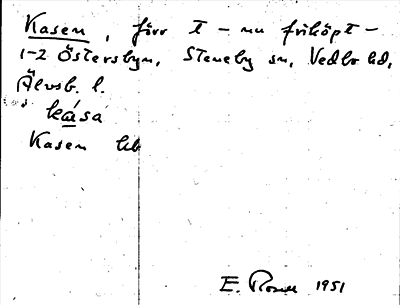 Kasen, förr t – nu friköpt –
1-2 Östersbyn, Steneby sn, Vedbo hd,
Älvsb. l.
kása
Kasen hb
E. Rosell 1951